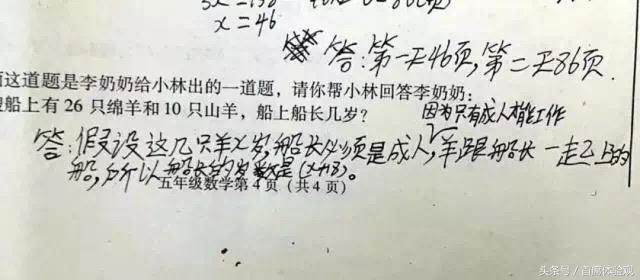 x=46
答:第一天46页,第二天86页.
面这道题是李奶奶给小林出的一道题，请你帮小林回答李奶奶：
船上有26只绵羊和10只山羊，船上船长几岁？
因为只有成人才能工作
答:假设这几只羊x岁,船长必须是成人,羊跟船长一起上的
船,所以船长的岁数是(x+18)。
五年级数学第4页（共4页）
头条号/首席体验观